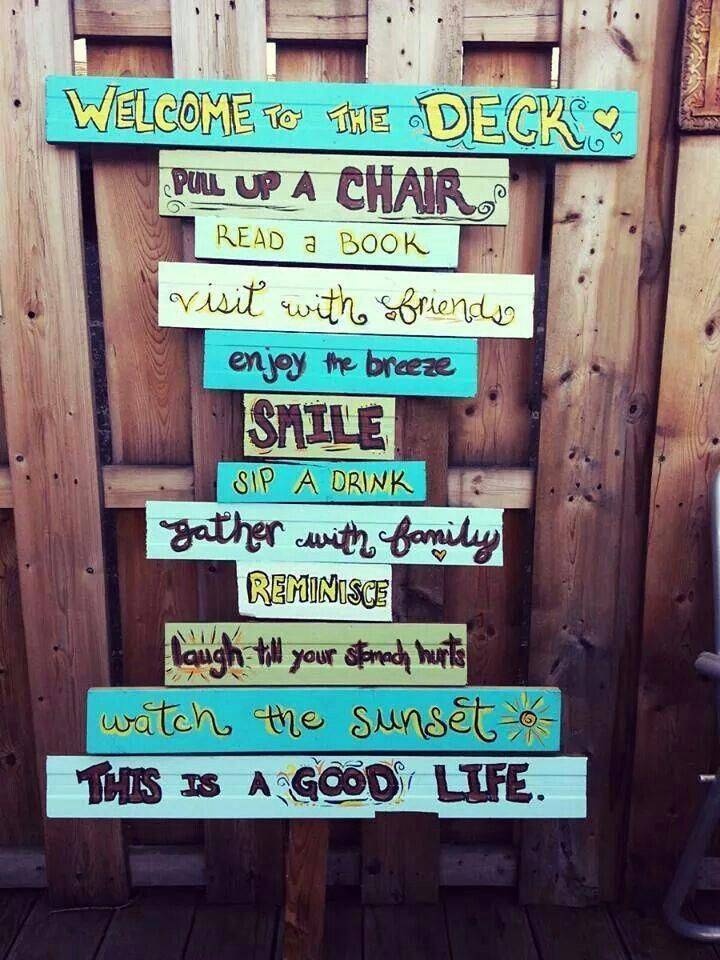 WELCOME TO THE DECK
PULL UP A CHAIR
READ a BOOK
visit with friends
enjoy the breeze
SMILE
SIP A DRINK
gather with family
REMINISCE
laugh till your stomach hurts
watch the sunset
THIS IS A GOOD LIFE.